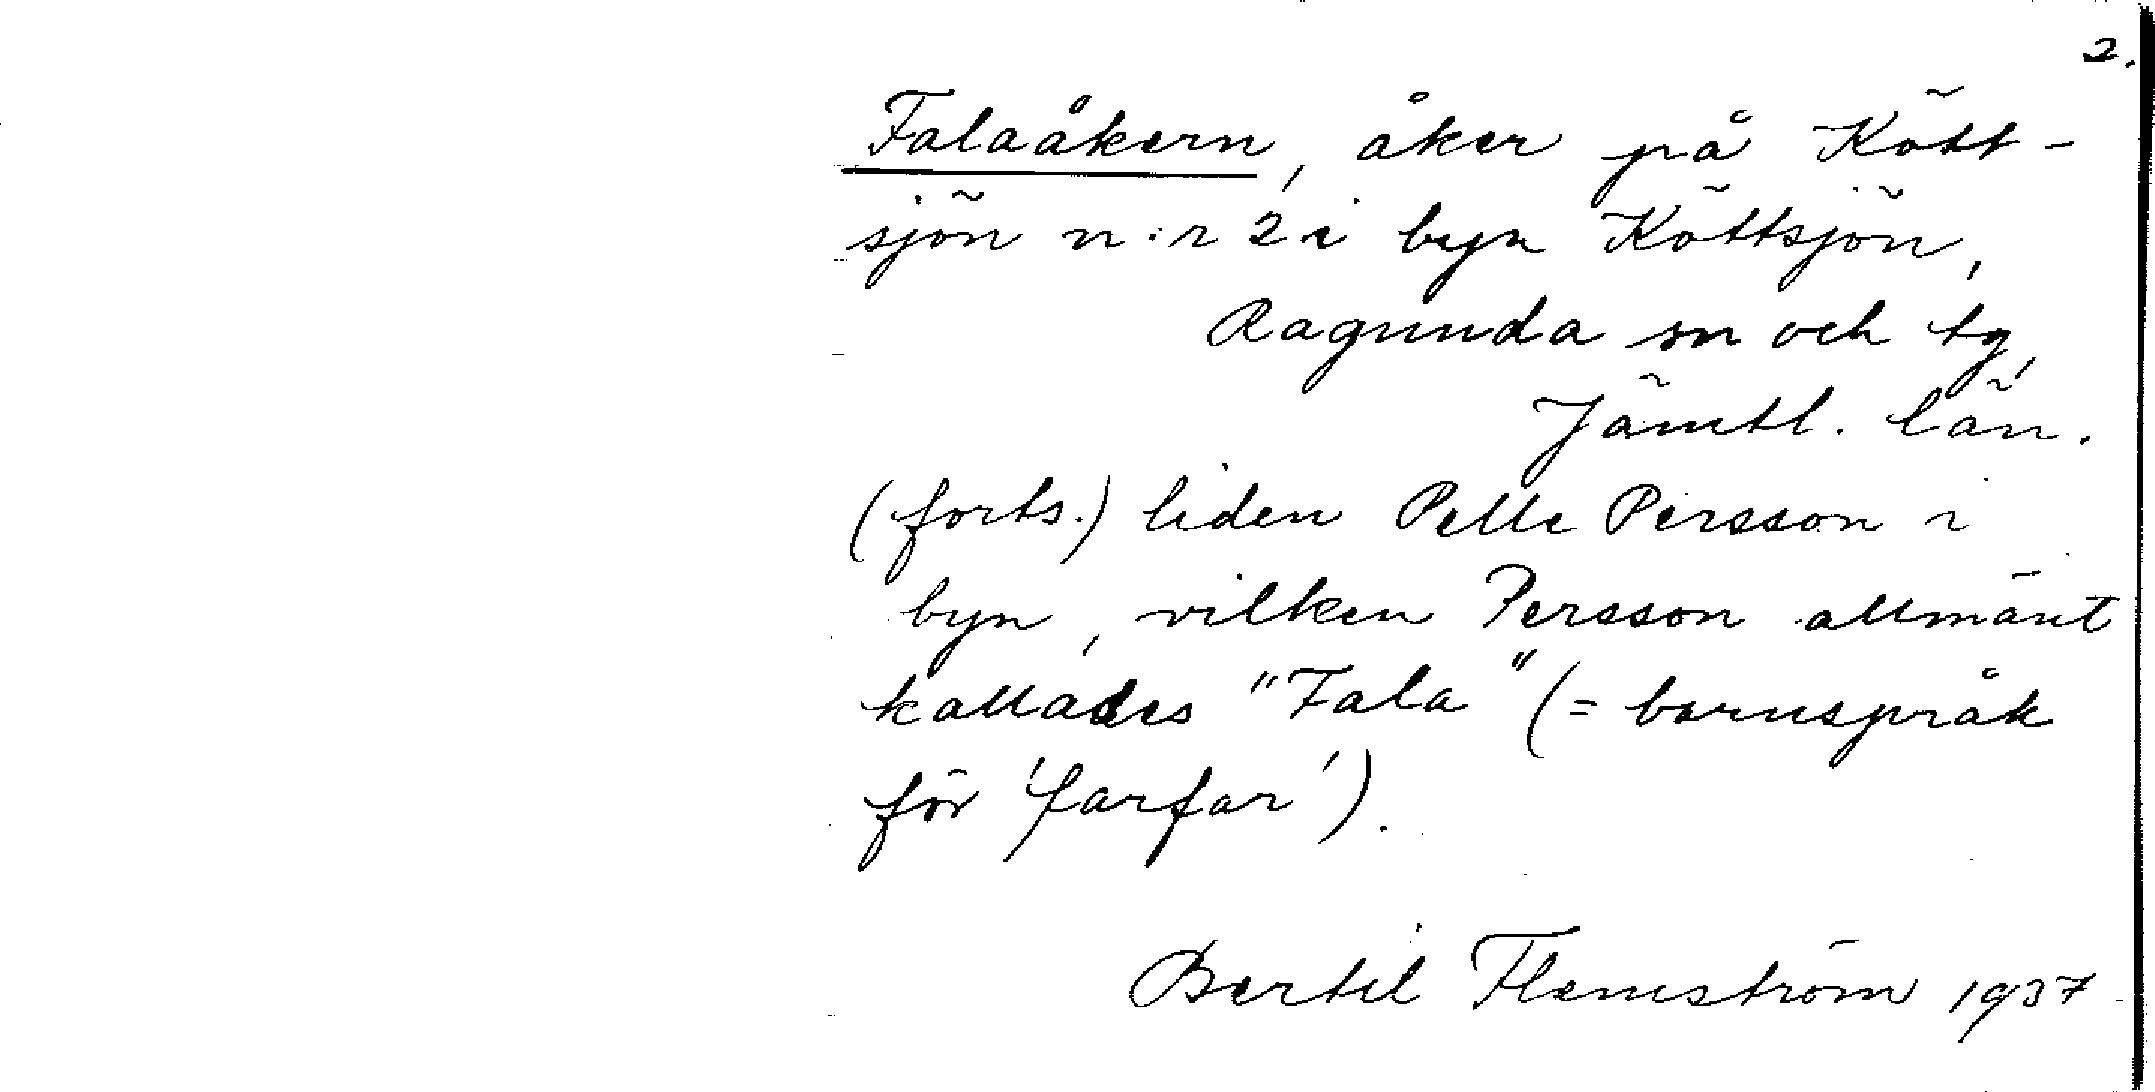 2.
Falaåkern, åker på Kött-
sjön n:r 2 i byn Köttsjön,
Ragunda sn och tg,
Jämtl. län.
(forts.) liden Pelle Persson i
byn, vilken Persson allmänt
kallades "Fala" (= barnspråk
för 'farfar').
Bertil Flemström 1937